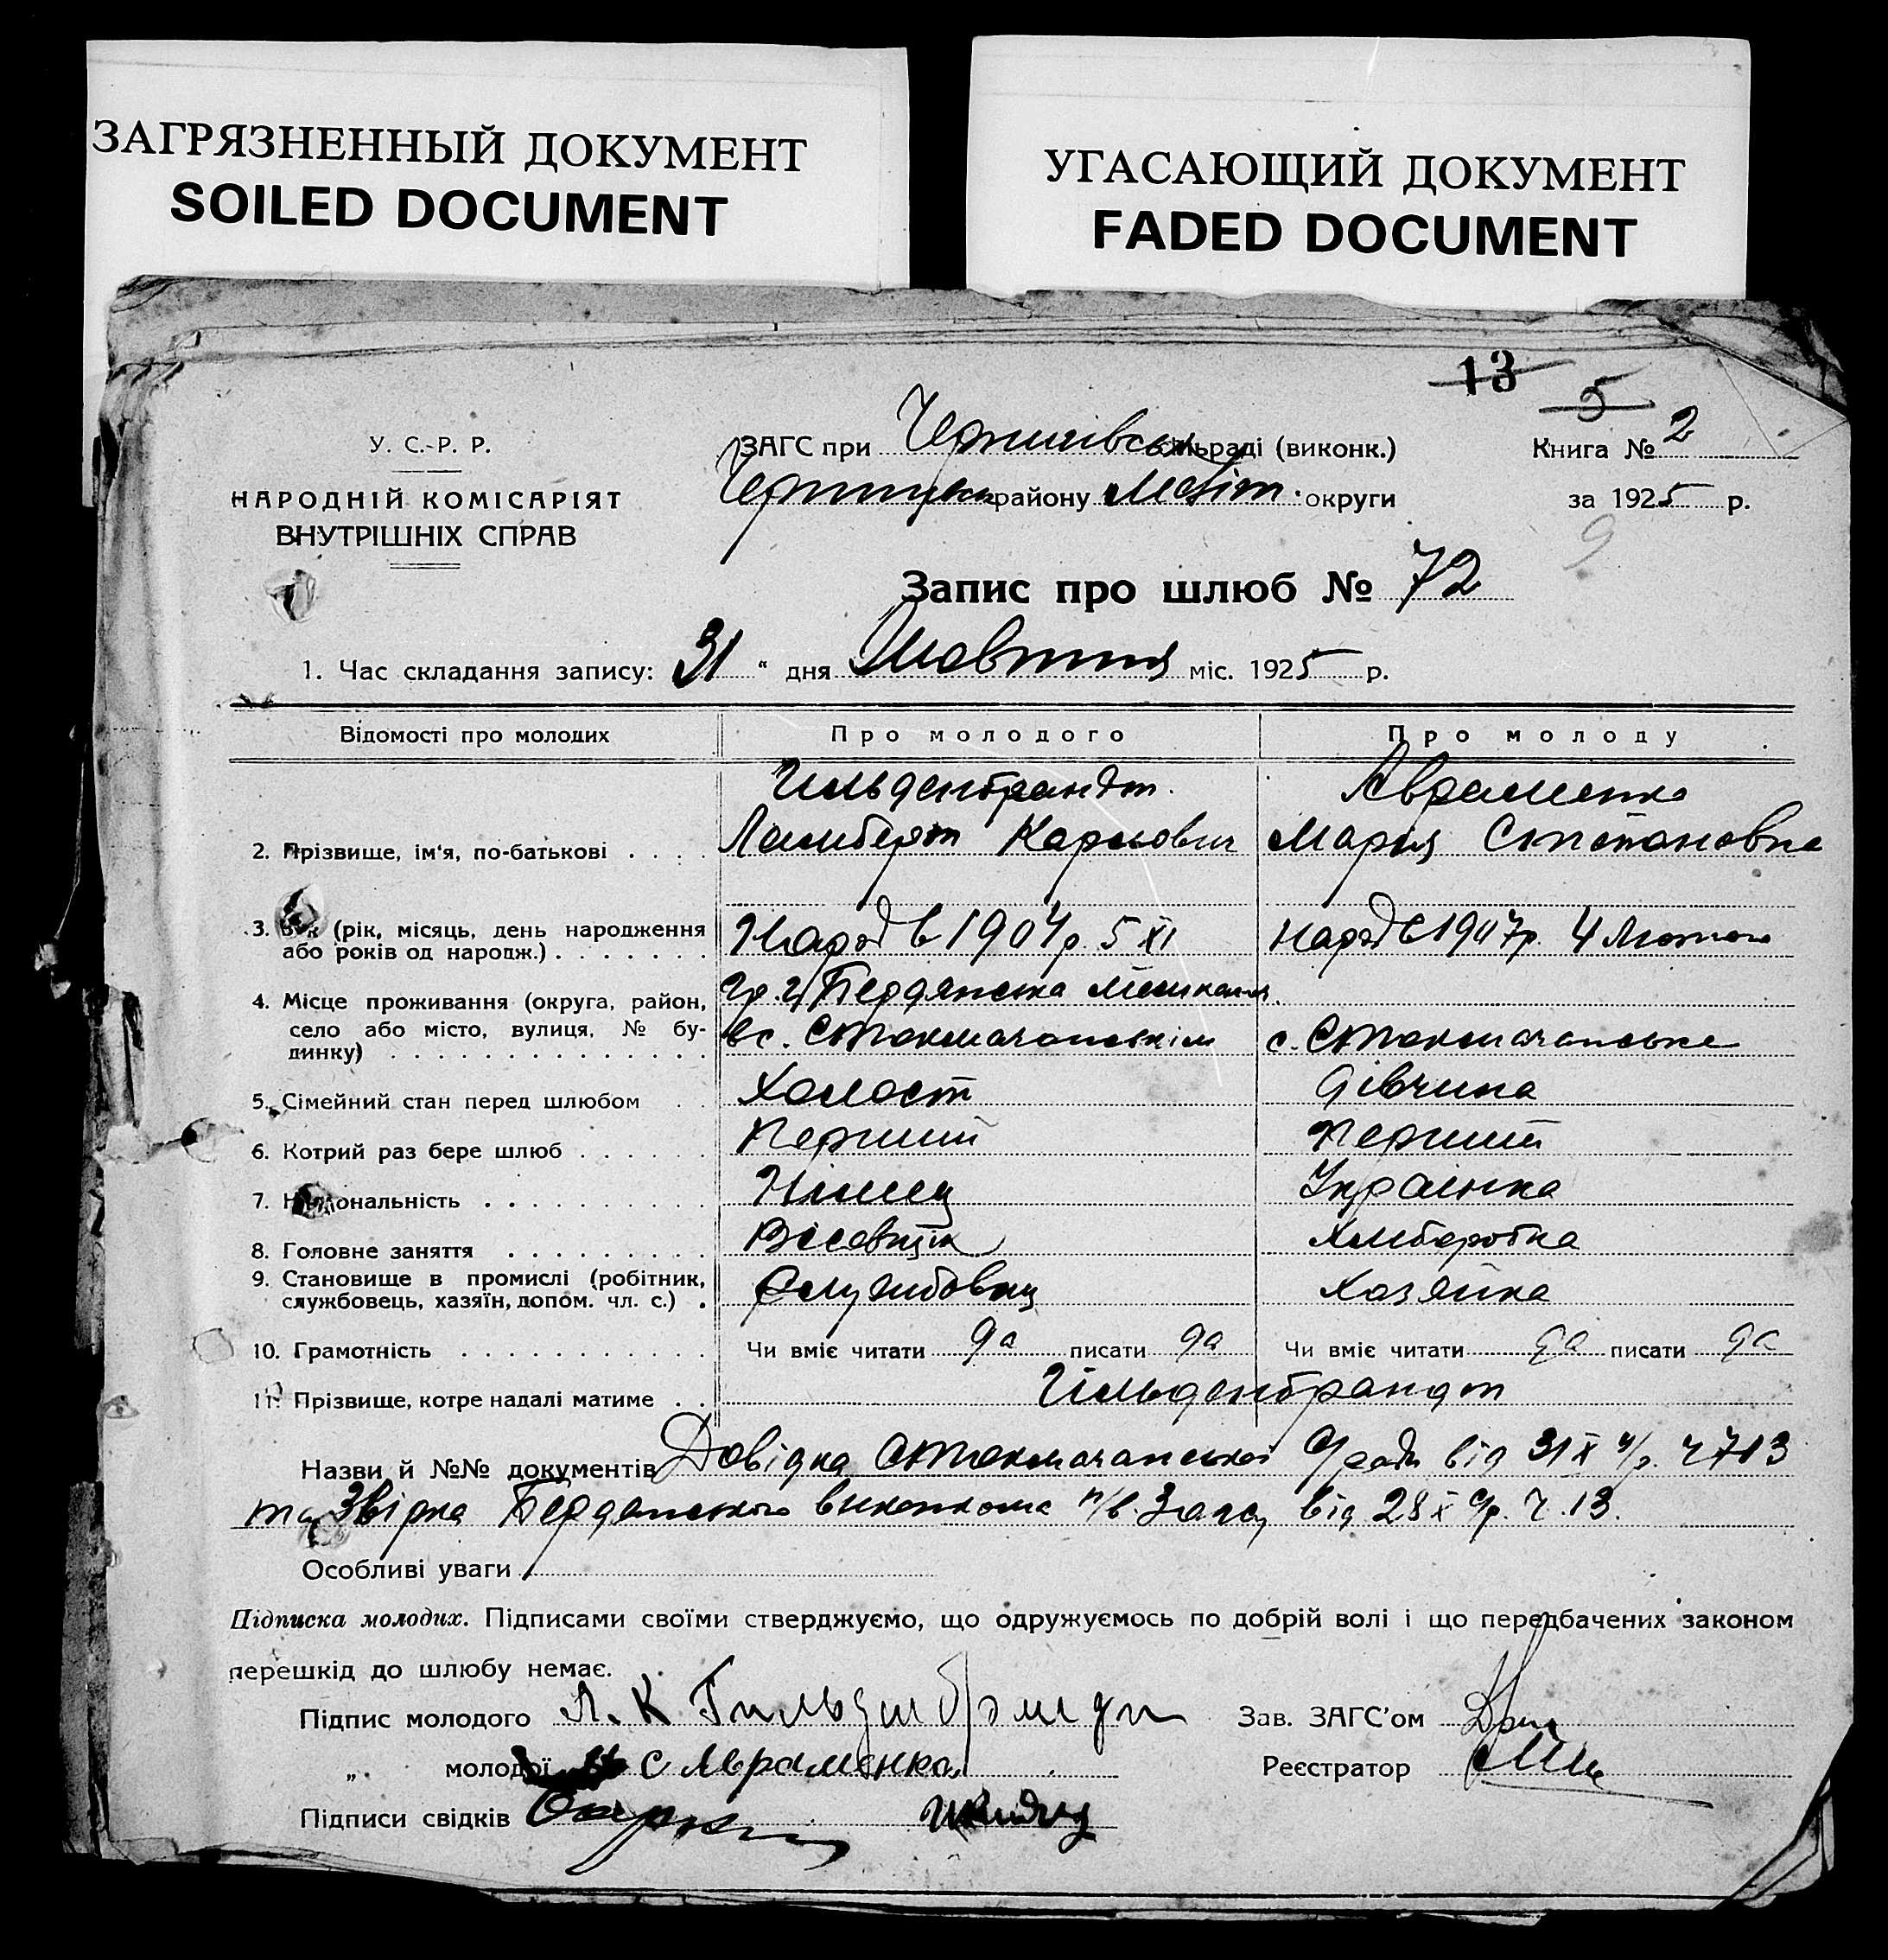 ЗАГРЯЗНЕННЫЙ ДОКУМЕНТ
SOILED DOCUMENT
УГАСАЮЩИЙ ДОКУМЕНТ
FADED DOCUMENT
13 5
У. С.-Р. Р.
НАРОДНІЙ КОМІСАРІЯТ
ВНУТРІШНІХ СПРАВ
ЗАГС при Чернигівськ раді (виконк.) Книга № 2
району Меліт. округи за 1925 р.
9
Запис про шлюб № 72
1. Час складання запису: 31 " дня Жовтня міс. 1925 р.
Відомості про молодих Про молодого Про молоду
Гильденбрандт. Авраменка
2. Прізвище, ім'я, по-батькові Ламберт Карлович Мария Степановна
3. Вік (рік, місяць, день народження Народ в 1904 р. 5 XI народ в 1907 р. 4 Лютого
або років од народж.)
4. Місце проживання (округа, район, гр. г. Бердянська мешкает.
село або місто, вулиця, № бу- в с. Стокмачанським с. Стокмачанське
динку)
5. Сімейний стан перед шлюбом Холост дівчина
6. Котрий раз бере шлюб Перший Перший
7. Національність Німец Українка
8. Головне заняття Вісовщик Хлеборобка
9. Становище в промислі (робітник, Службовец Хозяйка
службовець, хазяїн, допом. чл. с.)
10. Грамотність Чи вміє читати да писати да Чи вміє читати да писати да
11. Прізвище, котре надалі матиме Гільденбрандт
Назви й №№ документів Довідка Стокмачанської С/ради від 31 X ч. 713
та Звірка Бердянського виконкома п/в Загс від 28 X ч. 13.
Особливі уваги
Підписка молодих. Підписами своїми стверджуємо, що одружуємось по добрій волі і що передбачених законом
перешкід до шлюбу немає.
Підпис молодого Л. К Гильденбрандт Зав. ЗАГС'ом
„ молодої С Авраменка Реєстратор
Підписи свідків